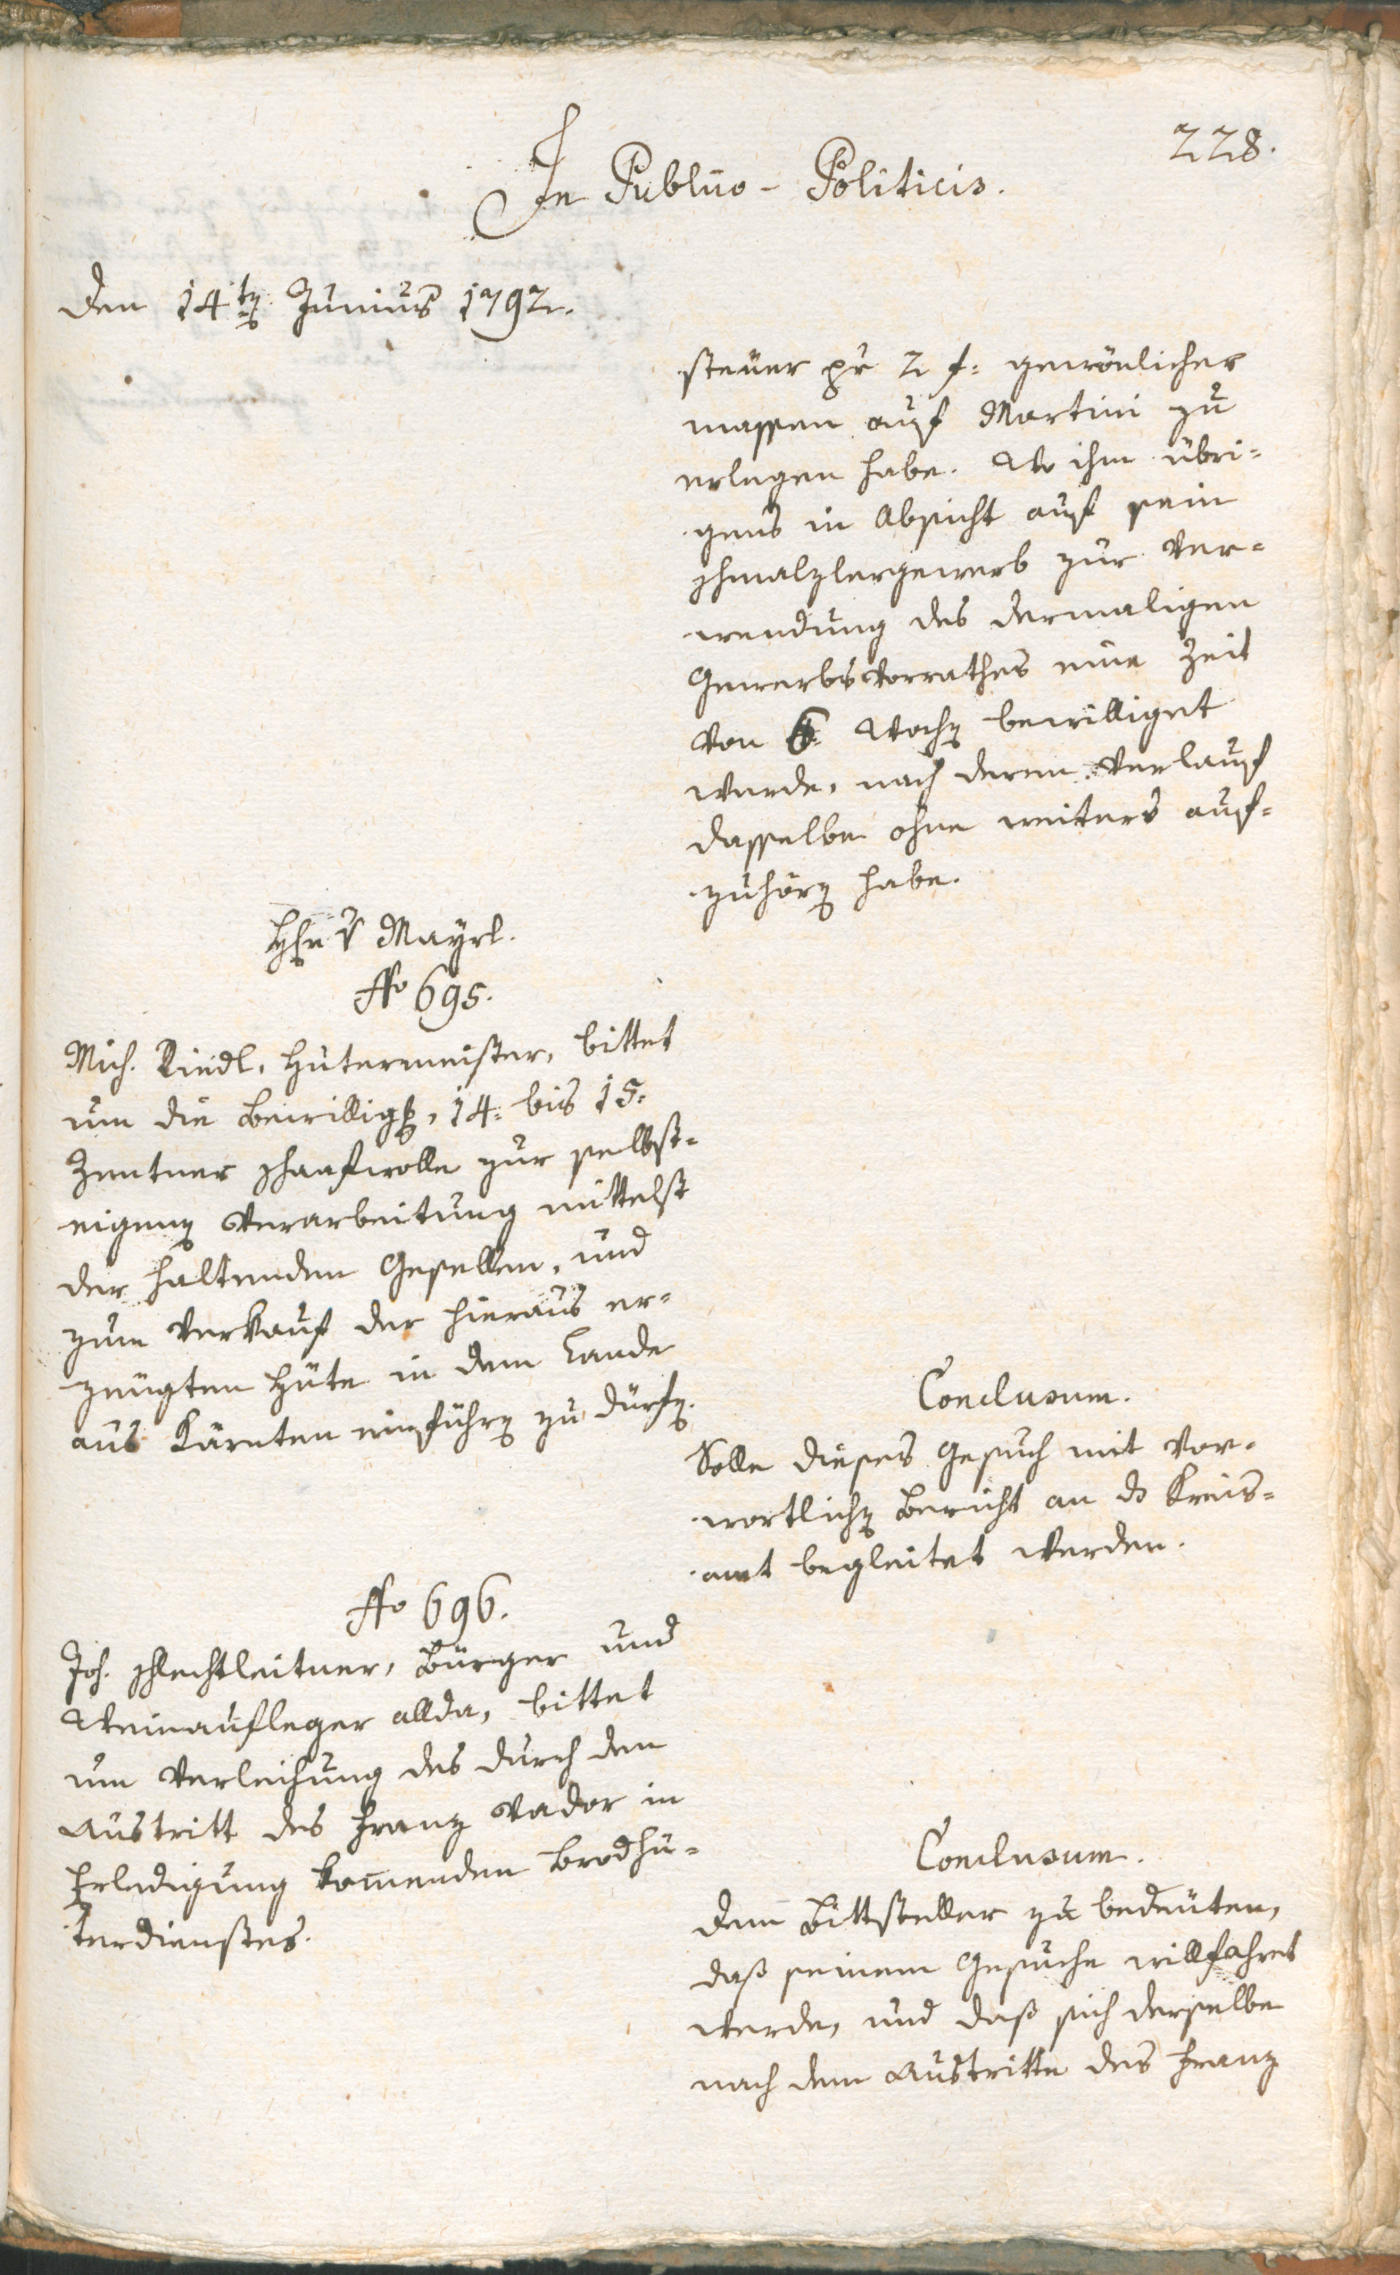 228.
In Publico-Politicis.
den 14tn Junius 1792.
steuer pr 2 f: gewönlicher
massen auf Martini zu
erlegen habe. Wo ihm übri=
gens in Absicht auf sein
Schmalzlergewerb zur Ver=
wendung des dermaligen
Gewerbsvorrathes eine Zeit
von 6: Wochen bewilliget
werde, nach deren Verlauf
dasselbe ohne weiters auf=
zuhören habe.
Hr v Mayrl.
No 695.
Mich. Riedl, Hutermeister, bittet
um die Bewilligg, 14: bis 15:
Zentner Schaafwolle zur selbst=
eigenen Verarbeitung mittelst
der haltenden Gesellen, und
zum Verkauf der hieraus er=
zeugten Hüte in dem Lande
aus Kärnten einführen zu dürfen.
Conclusum.
Solle dieses Gesuch mit vor=
wortlichen Bericht an ds Kreis=
amt begleitet werden.
No 696.
Joh. Schlechtleitner, Bürger und
Weinaufleger allda, bittet
um Verleihung des durch den
Austritt des Franz Vador in
Erledigung komenden Brodhü=
terdienstes.
Conclusum.
dem Bittsteller zu bedeuten,
daß seinem Gesuche willfahret
werde, und daß sich derselbe
nach dem Austritte des Franz